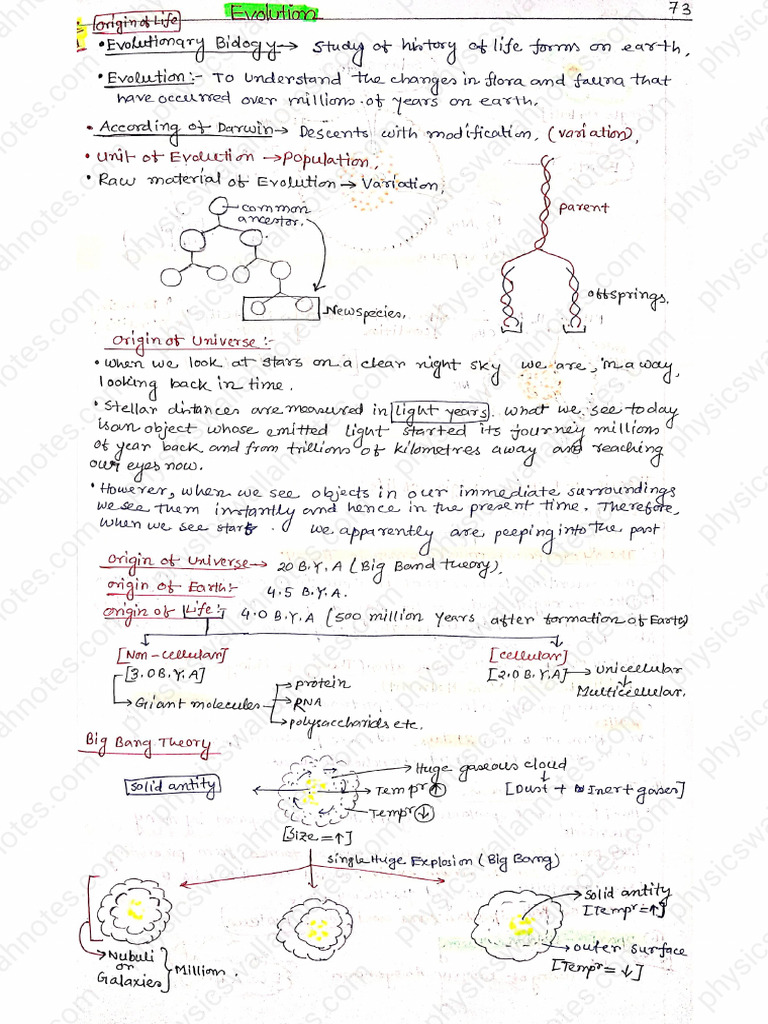 Evolution
73
Origin of Life
• Evolutionary Biology → Study of history of life forms on earth,
• Evolution:- To understand the changes in flora and fauna that
have occurred over millions of years on earth.
• According of Darwin → Descents with modification, (variation),
• Unit of Evolution → Population,
• Raw material of Evolution → Variation,
common
ancestor.
New species,
parent
offsprings.
Origin of Universe:-
• when we look at stars on a clear night sky we are, in a way,
looking back in time.
• Stellar distances are measured in light years. what we see today
is an object whose emitted light started its journey millions
of year back and from trillions of kilometres away and reaching
our eyes now.
• However, when we see objects in our immediate surroundings
we see them instantly and hence in the present time. Therefore,
when we see stars . we apparently are peeping into the past
Origin of Universe → 20 B.Y.A (Big Band theory),
origin of Earth:- 4.5 B.Y.A.
origin of Life:- 4.0 B.Y.A (500 million years after formation of Earth)
[Non-cellular]
[3.0 B.Y.A]
→ Giant molecules
→ protein
→ RNA
→ polysaccharids etc.
[cellular]
[2.0 B.Y.A] → Unicellular
Multicellular.
Big Bang Theory
solid antity
Huge gaseous cloud
[Dust + Inert gases]
Tempr ↑
Tempr ↓
[Size = ↑]
Single Huge Explosion (Big Bang)
Nubuli
or
Galaxies} Million.
solid antity
[Tempr = ↑]
outer surface
[Tempr = ↓]
physicswallahnotes.com